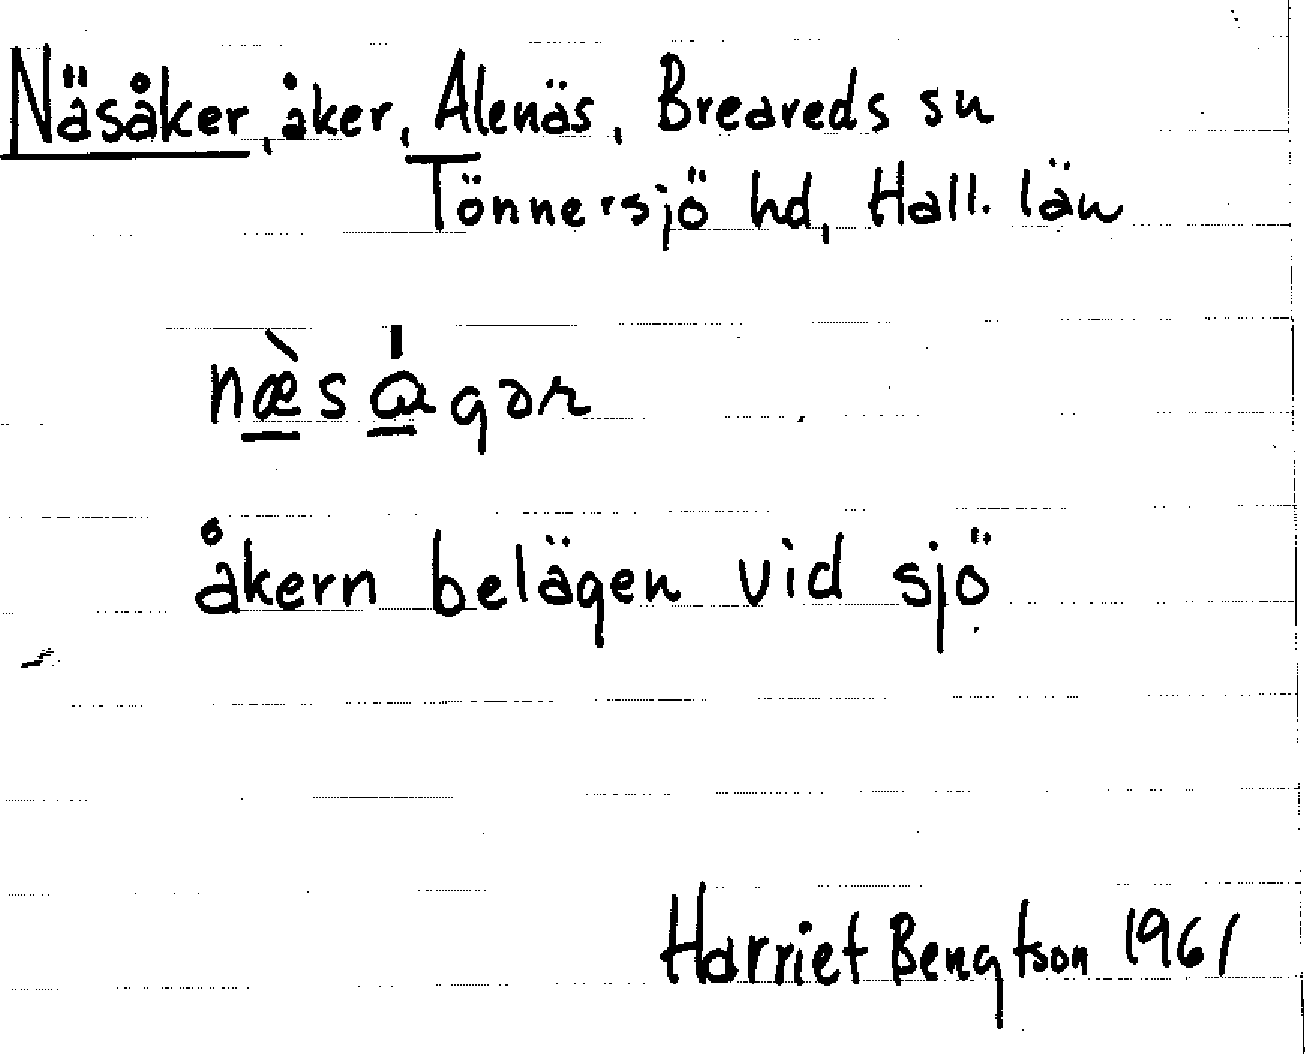 Näsåker, åker, Alenäs, Breareds sn
Tönnersjö hd, Hall. län
næ̠̀sɑ̠́gər
åkern belägen vid sjö
Harriet Bengtson 1961